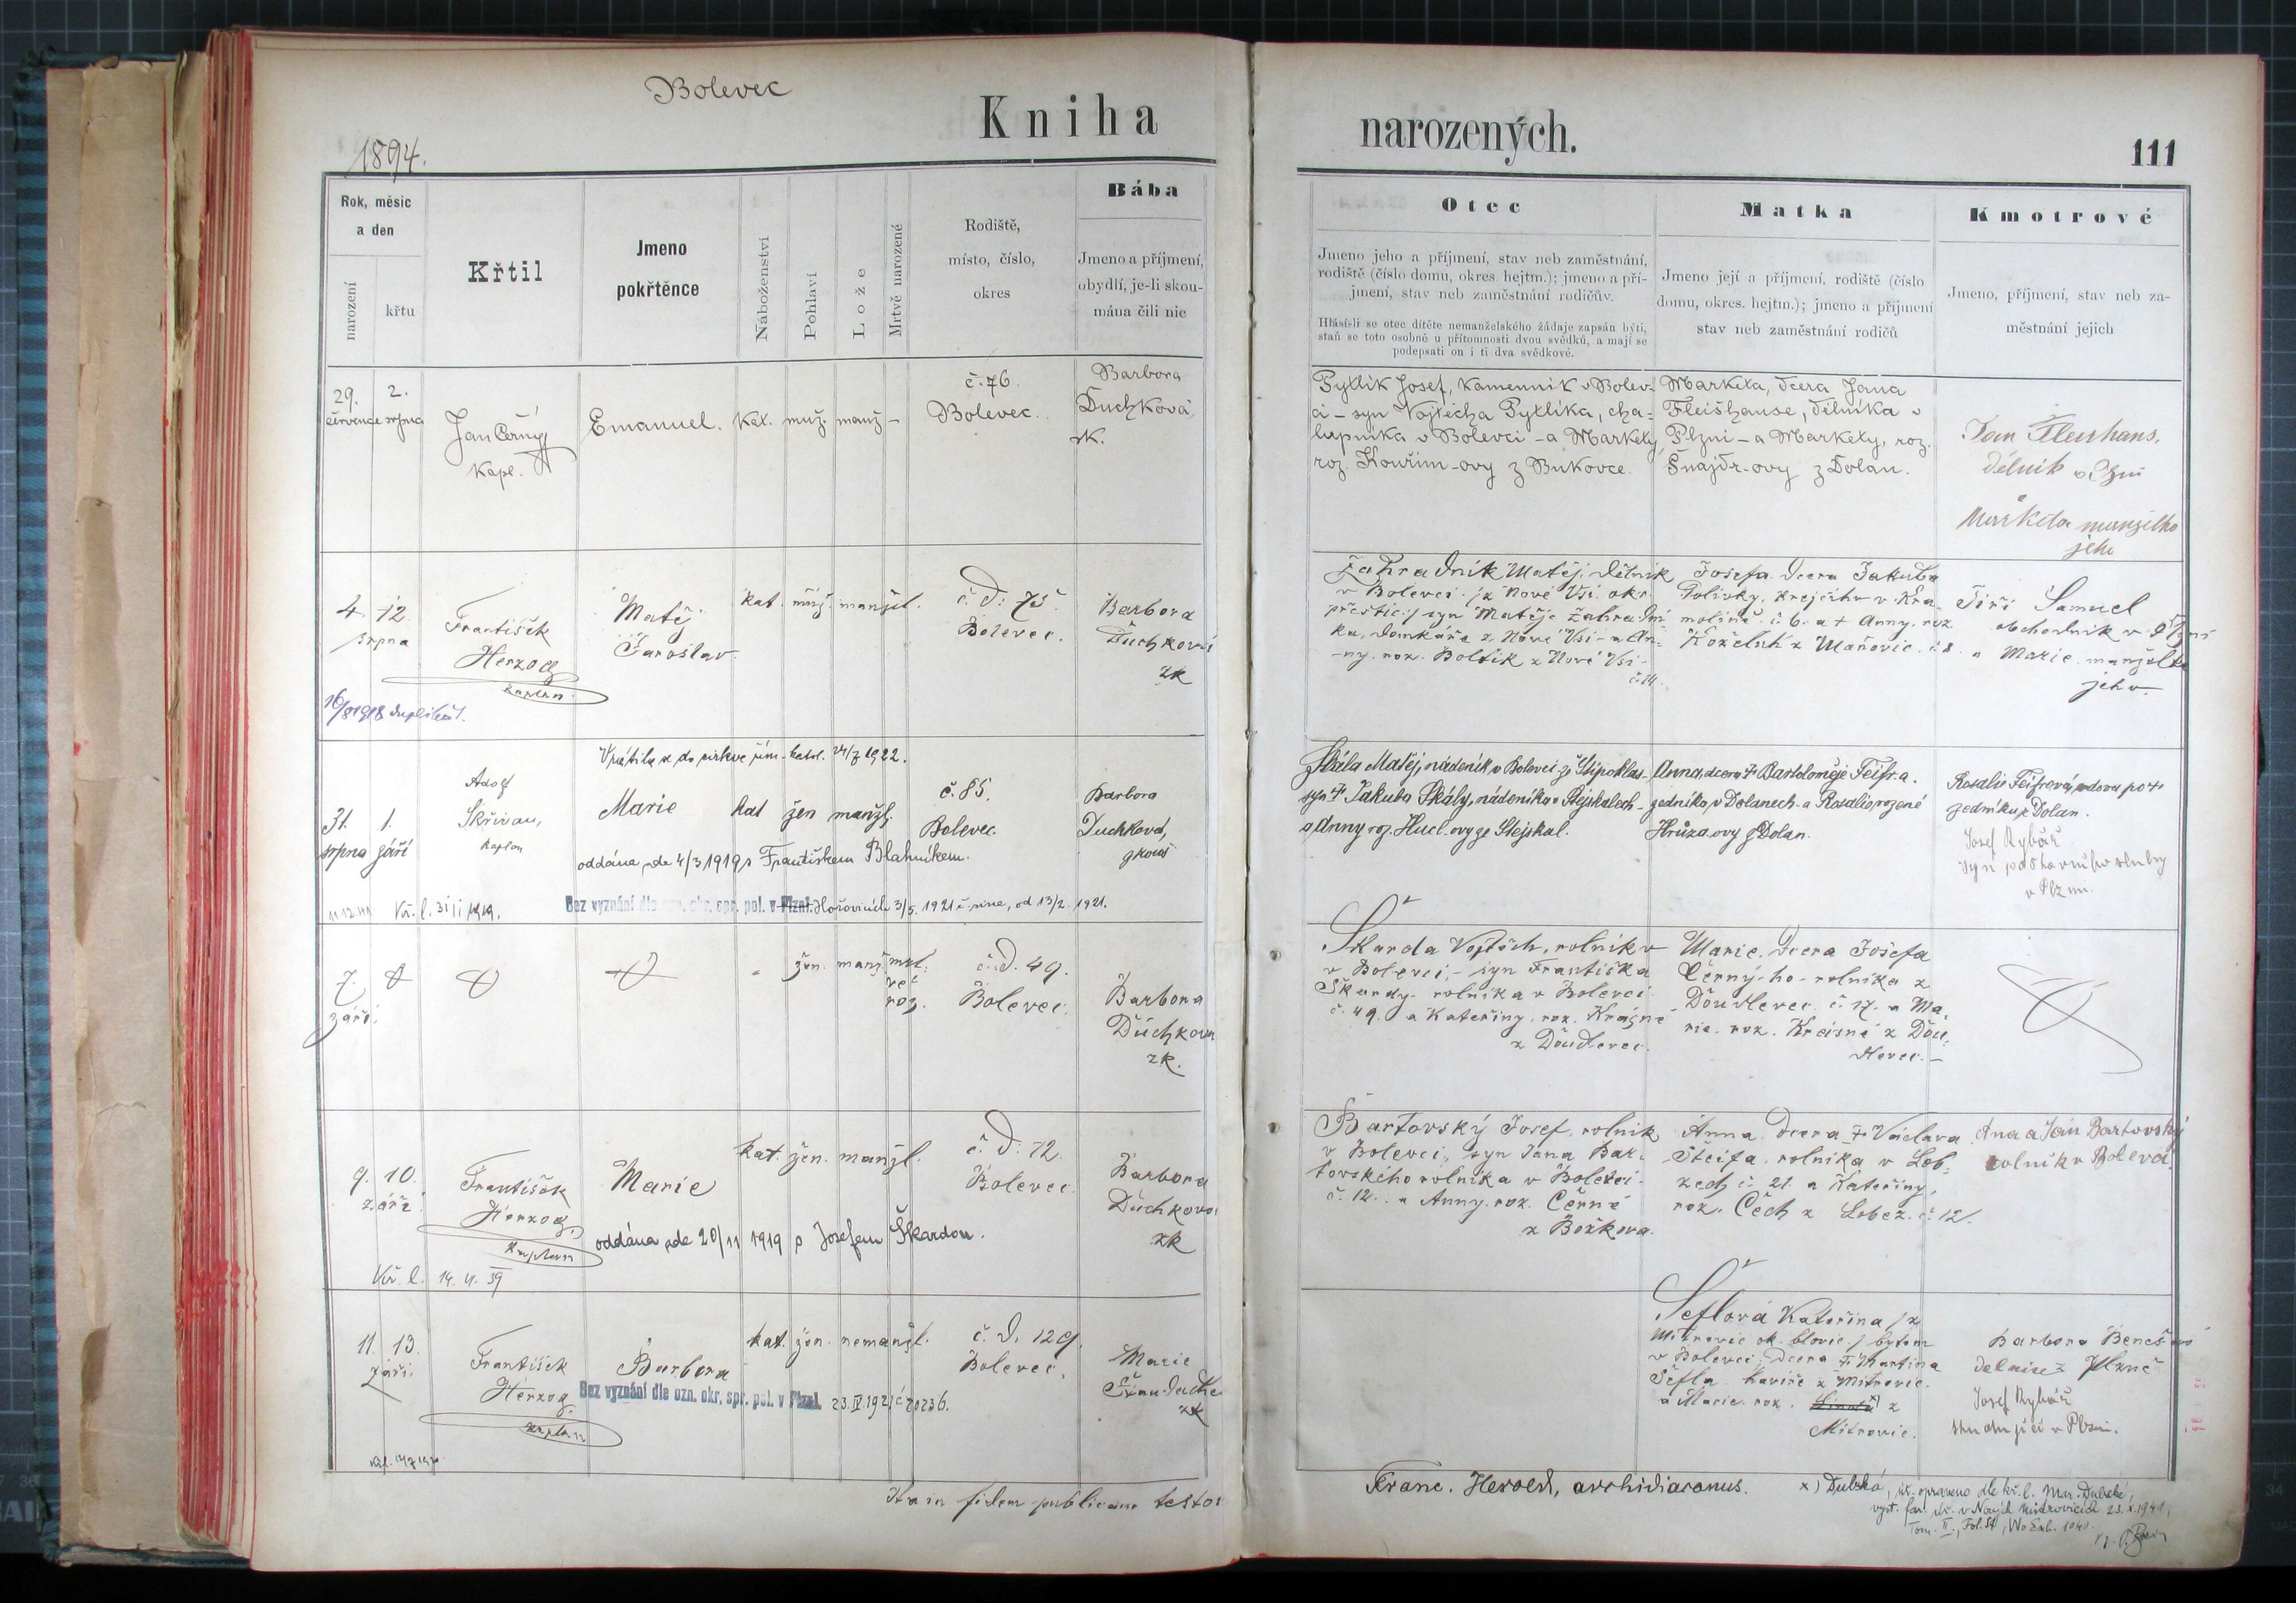 Bolevec
Kniha
narozených.
1894.
111
Rok, měsíc
a den
narození
křtu
Křtil
Jmeno
pokřtěnce
Náboženství
Pohlaví
Lože
Mrtvě narozené
Rodiště,
místo, číslo,
okres
Bába
Jmeno a příjmení,
obydlí, je-li skou-
mána čili nic
Otec
Jmeno jeho a příjmení, stav neb zaměstnání,
rodiště (číslo domu, okres hejtm.); jmeno a pří-
jmení, stav neb zaměstnání rodičův.
Hlásí-li se otec dítěte nemanželského žádaje zapsán býti,
staň se toto osobně u přítomnosti dvou svědků, a mají se
podepsati on i ti dva svědkové.
Matka
Jmeno její a příjmení, rodiště (číslo
domu, okres. hejtm.); jmeno a příjmení
stav neb zaměstnání rodičů
Kmotrové
Jmeno, příjmení, stav neb za-
městnání jejich
29.
července
2.
srpna
Jan Černý
Kapl.
Emanuel.
kat.
muž.
manž
–
č. 76.
Bolevec.
Barbora
Duchková
zk.
Pytlík Josef, kamenník v Bolev-
ci – syn Vojtěcha Pytlíka, cha-
lupníka v Bolevci – a Markéty,
roz. Kouřim-ovy z Bukovce.
Markéta, dcera Jana
Fleišhanse, dělníka v
Plzni – a Markéty, roz.
Šnajdr-ovy z Dolan.
Jan Fleishans,
dělník v Plzni
Markéta manželka
jeho
4.
12.
srpna
František
Herzog
kaplan
Matěj
Jaroslav.
kat.
muž.
manžel.
č. d. 75
Bolevec.
Barbora
Duchková
zk
Zahradník Matěj, dělník
v Bolevci /z Nové Vsi okr.
přeštic:/ syn Matěje Zahradní
ka, domkáře z Nové Vsi – a An-
ny, roz. Boltík z Nové Vsi –
č. 14.
Josefa dcera Jakuba
Polívky, krejčího v Kra-
č. 6. a + Anny, roz.
Koželuh z Maňovic č. 8.
Jiří Samuel
obchodník v Plzni
a Marie manželka
jeho.
16/8 1918 duplikát.
Vrátila se do církve řím.-katol. 24/7 1922.
31.
srpna
1.
září
Adolf
Skřivan,
kaplan
Marie
kat
žen
manžl.
č. 85.
Bolevec.
Barbora
Duchková,
zkouš
oddána zde 4/3 1919 s Františkem Blahníkem.
Kř. l. 31/1 1919.
Bez vyznání dle ozn. okr. spr. pol. v Plzni. Hořovicích 3/5. 1921 od 13/2. 1921.
Skála Matěj, nádeník v Bolevci ze Štipoklas –
syn + Jakuba Skály, nádeníka v Stejskalech –
a Anny roz. Hucl-ovy ze Stejskal.
Anna, dcera + Bartoloměje Feifra.
zedníka, v Dolanech – a Rosalie, rozené
Hrůza-ovy z Dolan.
Rosalie Feifrová, vdova po +
zedníku z Dolan.
Josef Rybář
syn poštovního sluhy
v Plzni.
7.
září.
žen.
manž
mrt.
vě
roz.
č. d. 49.
Bolevec.
Barbora
Duchková
zk.
Škarda Vojtěch, rolník
v Bolevci, – syn Františka
Škardy – rolníka v Bolevci
č. 49. a Kateřiny, roz. Krásné
z Doudlevec.
Marie, dcera Josefa
Černý-ho – rolníka z
Doudlevec č. 17. a Ma-
rie, roz. Kreisné z Dou-
dlevec. –
9.
10.
září
František
Herzog
kaplan
Marie
kat.
žen.
manžl.
č. d. 12.
Bolevec
Barbora
Duchková
zk
oddána zde 20/11 1919 s Josefem Škardou.
Kř. l. 14. 4. 39
Bartovský Josef, rolník
v Bolevci, syn Jana Bar-
tovského rolníka v Bolevci
č. 12. a Anny, roz. Černé
z Božkova.
Anna dcera + Václava
Steifa rolníka v Lob-
zech č. 21. a Kateřiny,
roz. Čech z Lobez č. 12.
Anna a Jan Bartovský
rolník v Bolevci
11.
13.
září.
František
Herzog.
kaplan
Barbora
kat.
žen.
nemanžl.
č. d. 129.
Bolevec.
Marie
zk
Bez vyznání dle ozn. okr. spr. pol. v Plzni. 23. IV. 1921 č 20236.
Šeflová Kateřina /z
Mitrovic ok. blovic./ bytem
v Bolevci, dcera + Martina
Šefla havíře z Mitrovic.
a Marie roz. x) z
Mitrovic.
Barbora Benešová
dělnice z Plzně
Josef Rybář
studující v Plzni.
Ita in fidem publicam testor
Franc. Herold, archidiaconus.
x) Dubská, úř. opraveno dle kř. l. Mar. Dubské,
vyst. far. úř. v Nových Mitrovicích 23. X. 1941,
Tom. II., Fol. 51, No Exh. 1041.